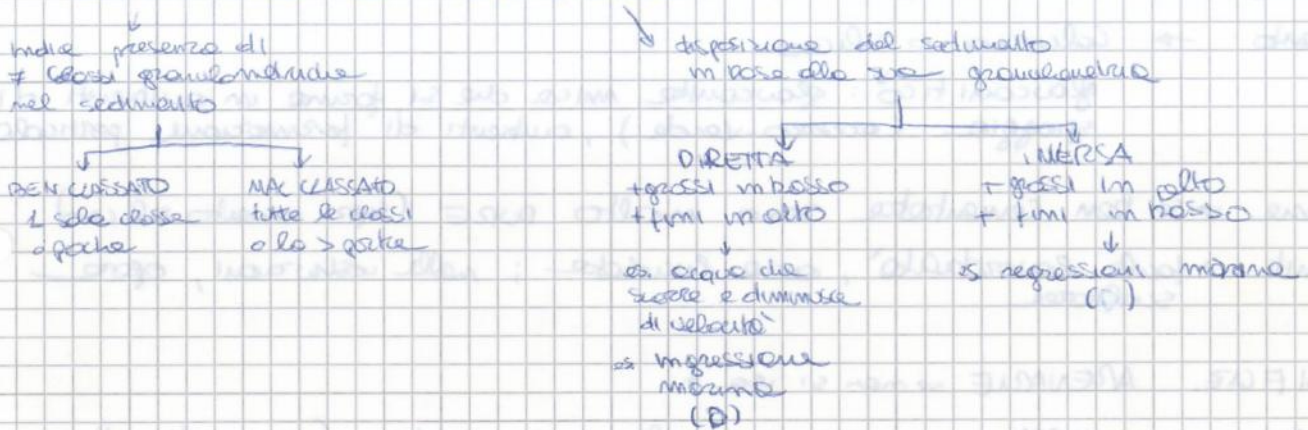 indica presenza di
≠ classi granulometriche
nel sedimento
BEN CLASSATO
1 sola classe
o poche
MAL CLASSATO
tutte le classi
o la > parte
disposizione del sedimento
in base alla sua granulometria
DIRETTA
+ grossi in basso
+ fini in alto
es. acqua che
scorre e diminuisce
di velocità
es ingressione
marina
(D)
INVERSA
+ grossi in alto
+ fini in basso
es regressioni marine